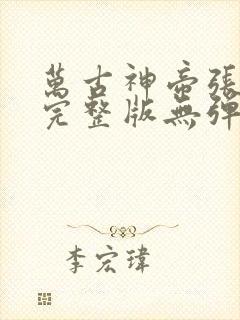 萬古神帝張
完整版無彈
李宏瑋